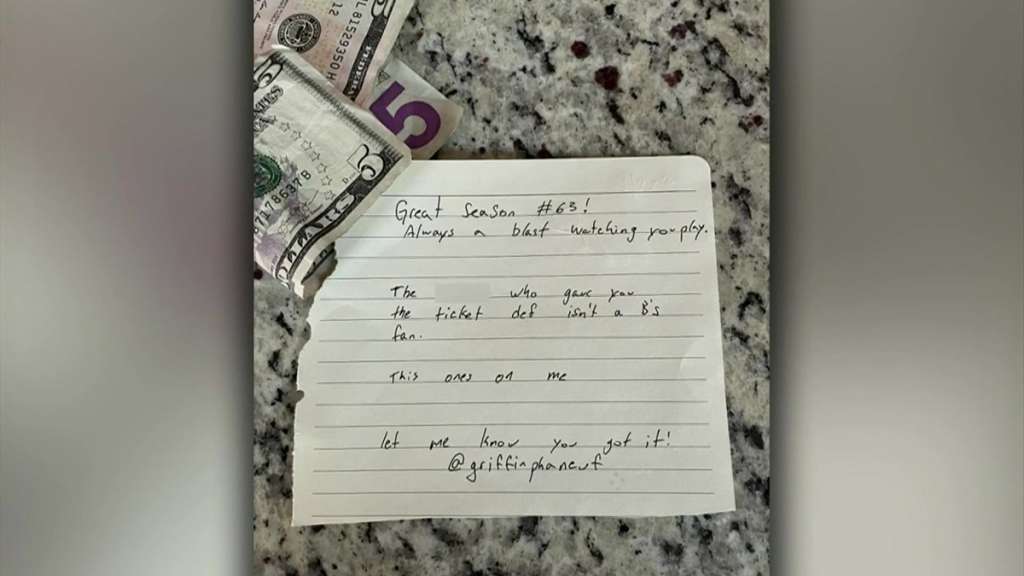 L81529350H
12
5
5
Great Season #63!
Always a blast watching you play.
The who gave you
the ticket def isn't a B's
fan.
This ones on me
let me know you got it!
@griffinphaneuf